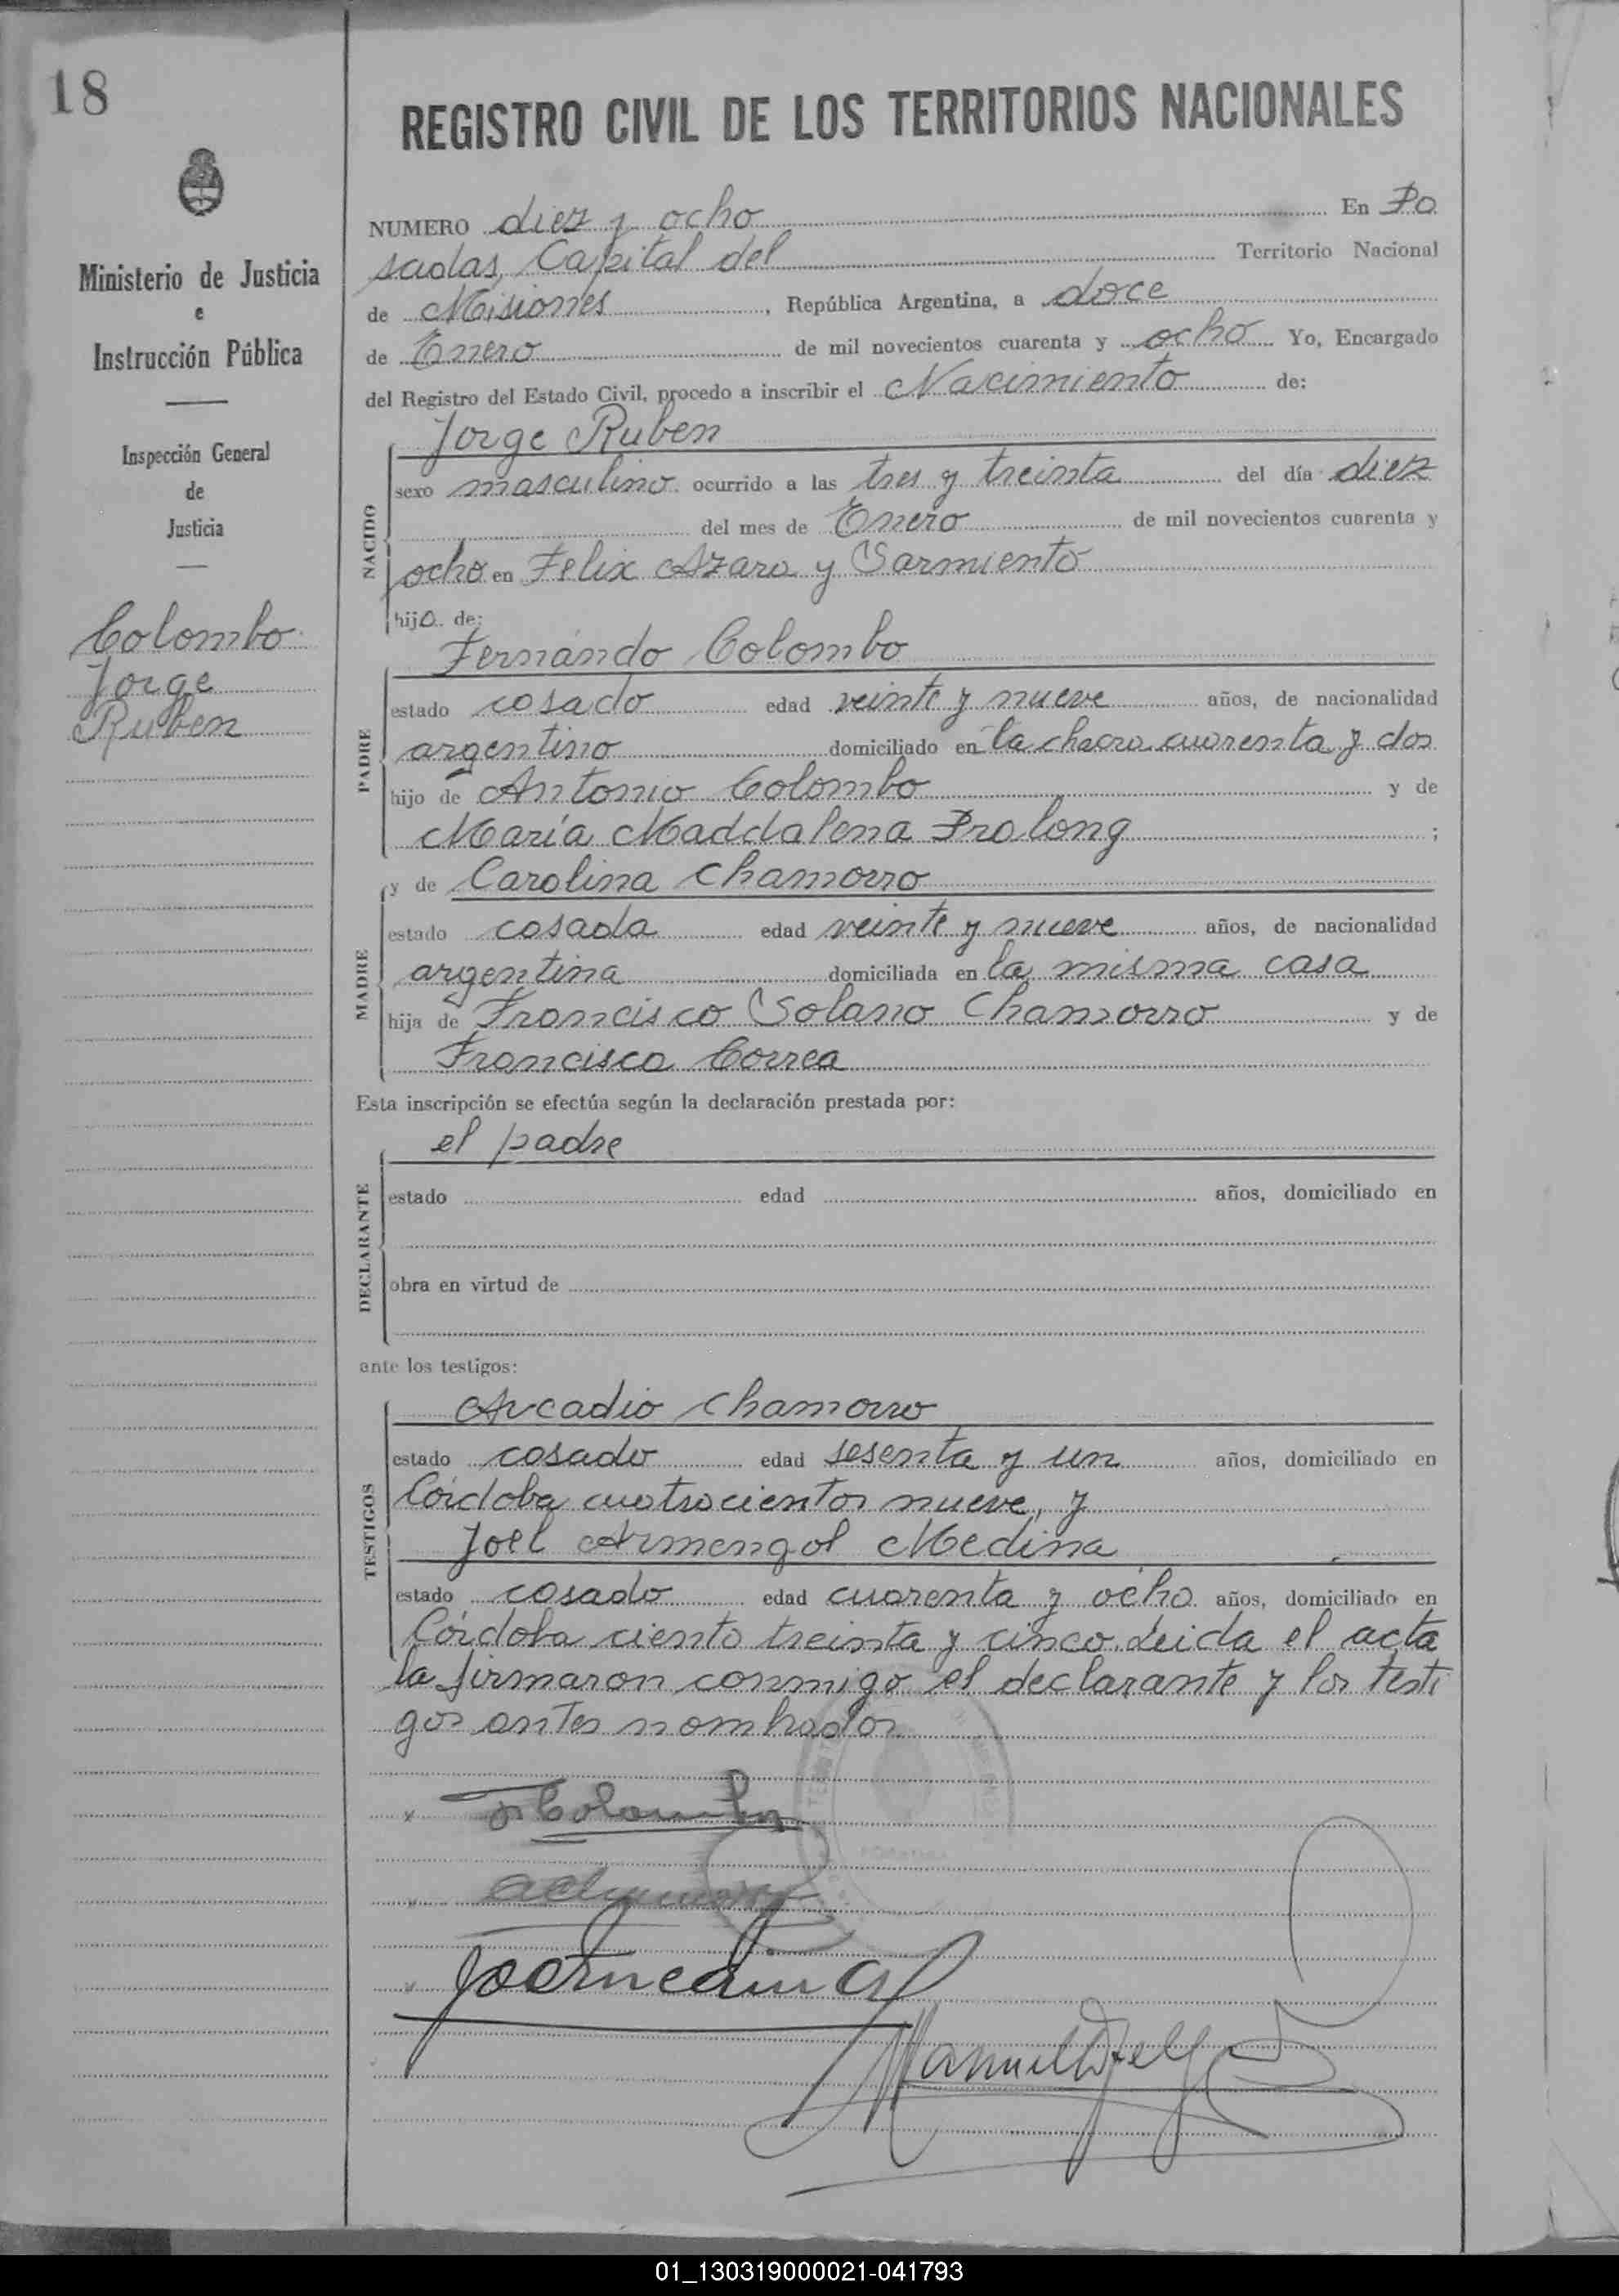 18
REGISTRO CIVIL DE LOS TERRITORIOS NACIONALES
Ministerio de Justicia
e
Instrucción Pública
Inspección General
de
Justicia
Colombo
Jorge
Ruben
NUMERO diez y ocho En Po
sadas, Capital del Territorio Nacional
de Misiones, República Argentina, a doce
de Enero de mil novecientos cuarenta y ocho Yo, Encargado
del Registro del Estado Civil, procedo a inscribir el Nacimiento de:
NACIDO
Jorge Ruben
sexo masculino ocurrido a las tres y treinta del día diez
del mes de Enero de mil novecientos cuarenta y
ocho en Felix Azara y Sarmiento
hijo de:
PADRE
Fernándo Colombo
estado casado edad veinte y nueve años, de nacionalidad
argentino domiciliado en la chacra cuarenta y dos
hijo de Antonio Colombo y de
María Maddalena Prolong ;
MADRE
y de Carolina Chamorro
estado casada edad veinte y nueve años, de nacionalidad
argentina domiciliada en la misma casa
hija de Francisco Solano Chamorro y de
Francisca Correa
Esta inscripción se efectúa según la declaración prestada por:
DECLARANTE
el padre
estado edad años, domiciliado en
obra en virtud de
ante los testigos:
TESTIGOS
Arcadio Chamorro
estado casado edad sesenta y un años, domiciliado en
Córdoba cuatrocientos nueve, y
Joel Armengol Medina
estado casado edad cuarenta y ocho años, domiciliado en
Córdoba ciento treinta y cinco. Leida el acta
la firmaron conmigo el declarante y los testi
gos antes nombrados
F Colombo
Joel Medina
01_130319000021-041793